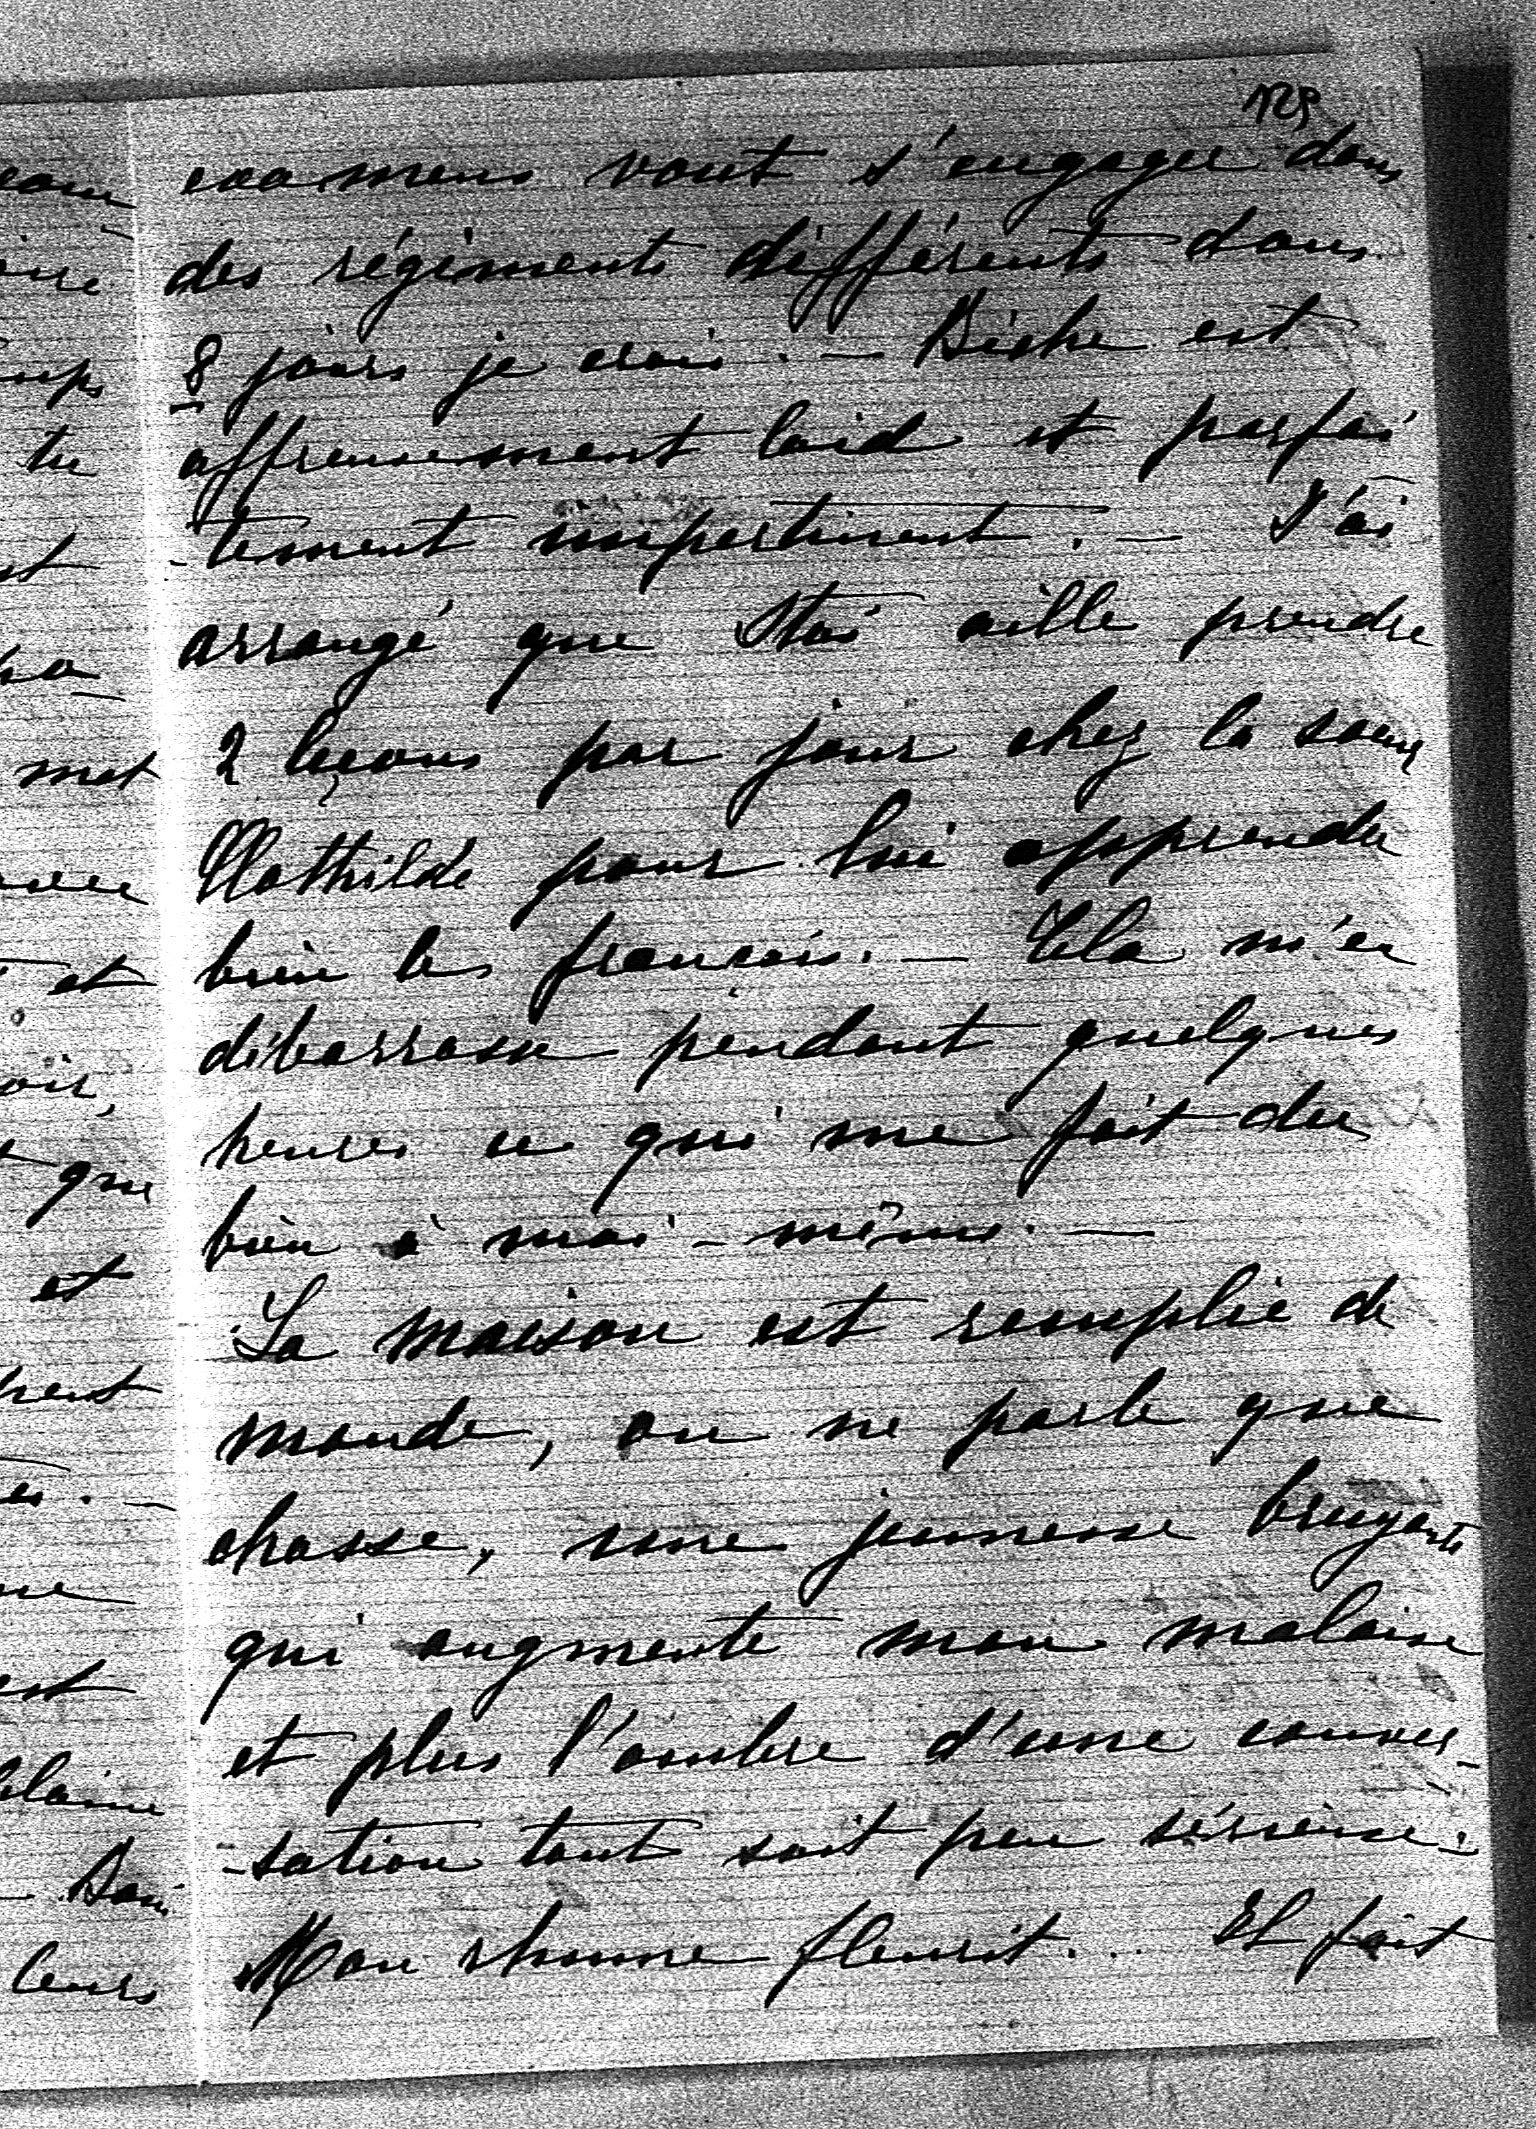 examens vont s'engager dans
des régiments différents dans
8 jours je crois. — Biche est
affreusement laid et parfai
-tement impertinent. — J'ai
arrangé que Stas aille prendre
2 leçons par jour chez la soeur
Mathilde pour lui apprendre
bien le français. — Cela m'en
débarrasse pendant quelques
heures ce qui me fait du
bien à moi-même. —
La maison est remplie de
monde, on ne parle que
chasse, une jeunesse bruyante
qui augmente mon malaise
et plus l'ombre d'une conver-
-sation tant soit peu sérieuse.
Mon rhume fleurit... Il fait
tu
met
et
que
et
leurs